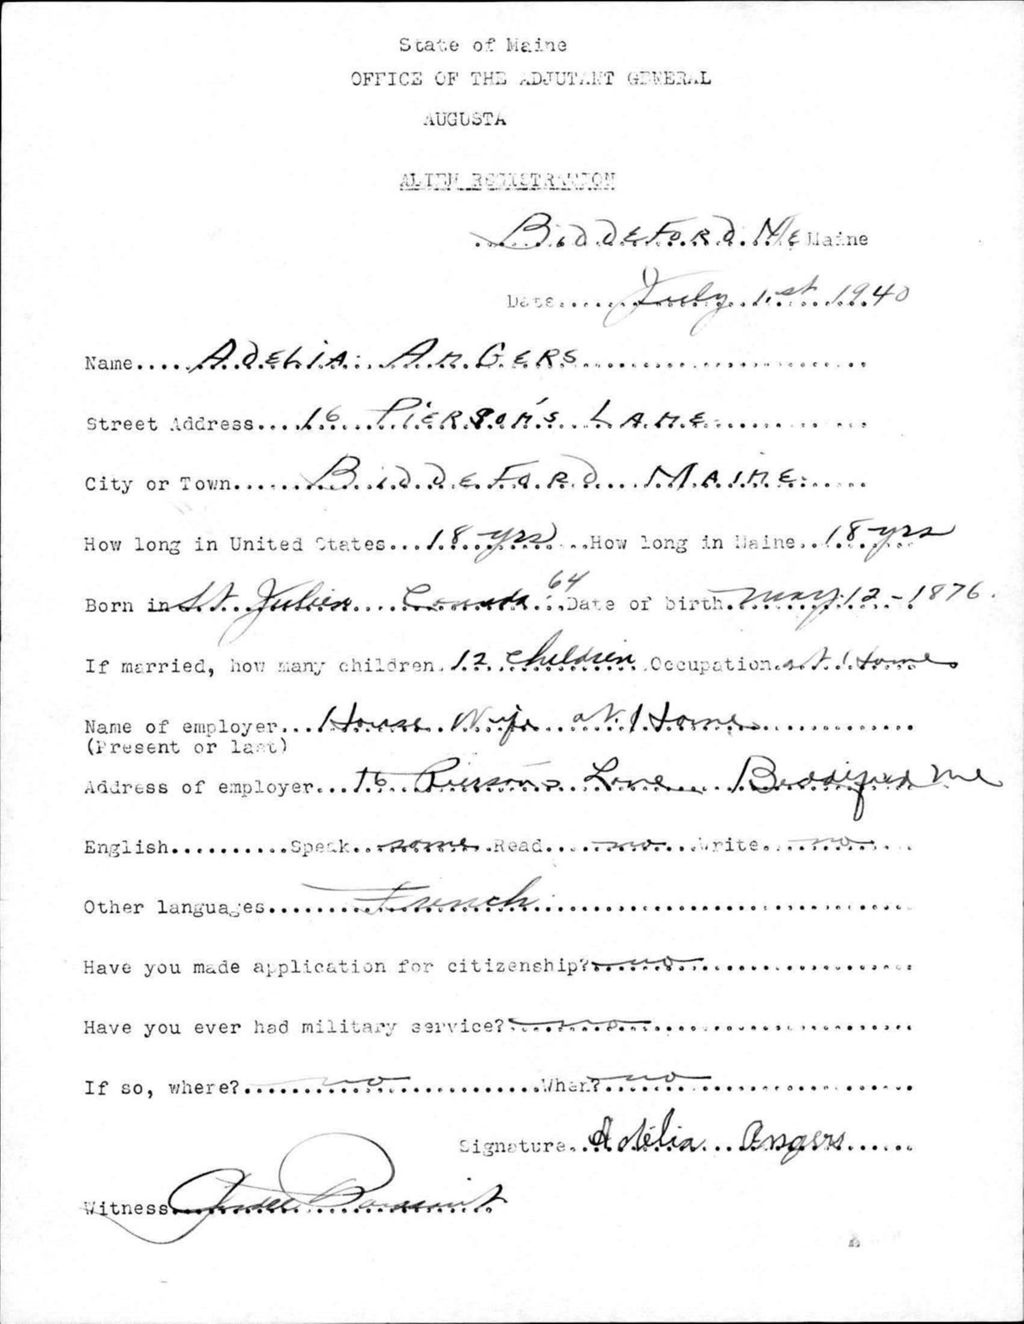 State of Maine
OFFICE OF THE ADJUTANT GENERAL
AUGUSTA
ALIEN REGISTRATION
BIDDEFORD. Me Maine
Date July 1st 1940
Name ADELIA ANGERS
Street Address 16 PIERSON'S LANE
City or Town BIDDEFORD MAINE
How long in United States 18 yrs How long in Maine 18 yrs
Born in St. Julien Canada 64 Date of birth May 12 - 1876.
If married, how many children 12 children Occupation at Home
Name of employer House Wife at Home
(Present or last)
Address of employer 16 Piersons Lane Biddeford Me
English Speak some Read no Write no
Other languages French
Have you made application for citizenship? no
Have you ever had military service? no
If so, where? no When? no
Signature Adélia Angers
Witness